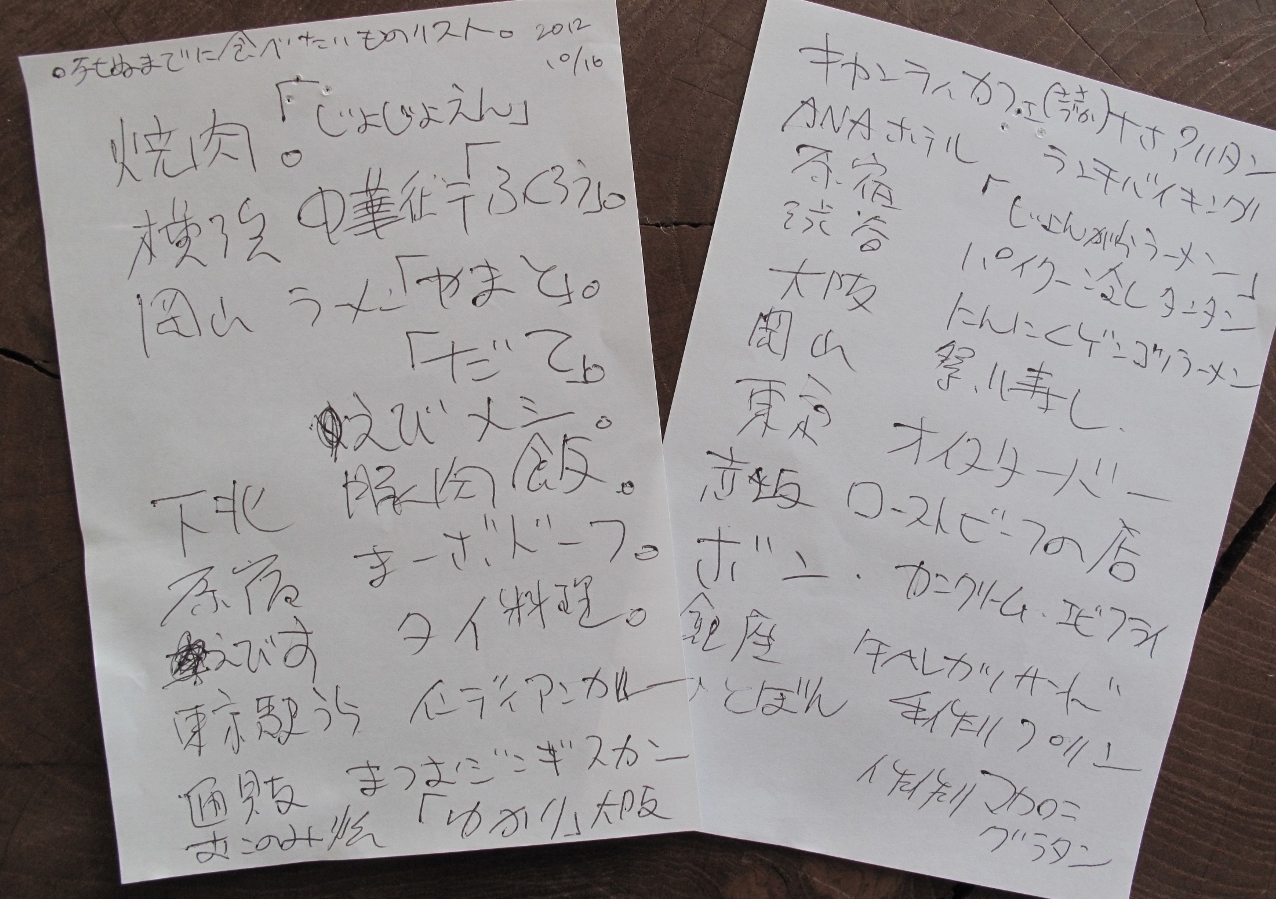 ○死ぬまでに食べたいものリスト。 2012 10/16
焼肉。「じょじょえん」
横浜 中華街「ふくろう」。
岡山 ラーメン「やまと」。
「だて」。
えびメシ。
下北 豚肉飯。
原宿 まーボドーフ。
えびす タイ料理。
東京駅うら インディアンカレー
通販 まつむジンギスカン
おこのみ焼 「ゆかり」大阪
キャンティカフェ
ANAホテル ランチバイキング
原宿 「じゃんがらラーメン」
渋谷 パイクー冷しタンタン
大阪 にんにくゲンコツラーメン
岡山 祭り寿し.
東京 オイスターバー
赤坂 ローストビーフの店
ボン. カニクリーム.エビフライ
銀座 カツサンド
とぼん 手作りプリン
手作りマカロニ
グラタン